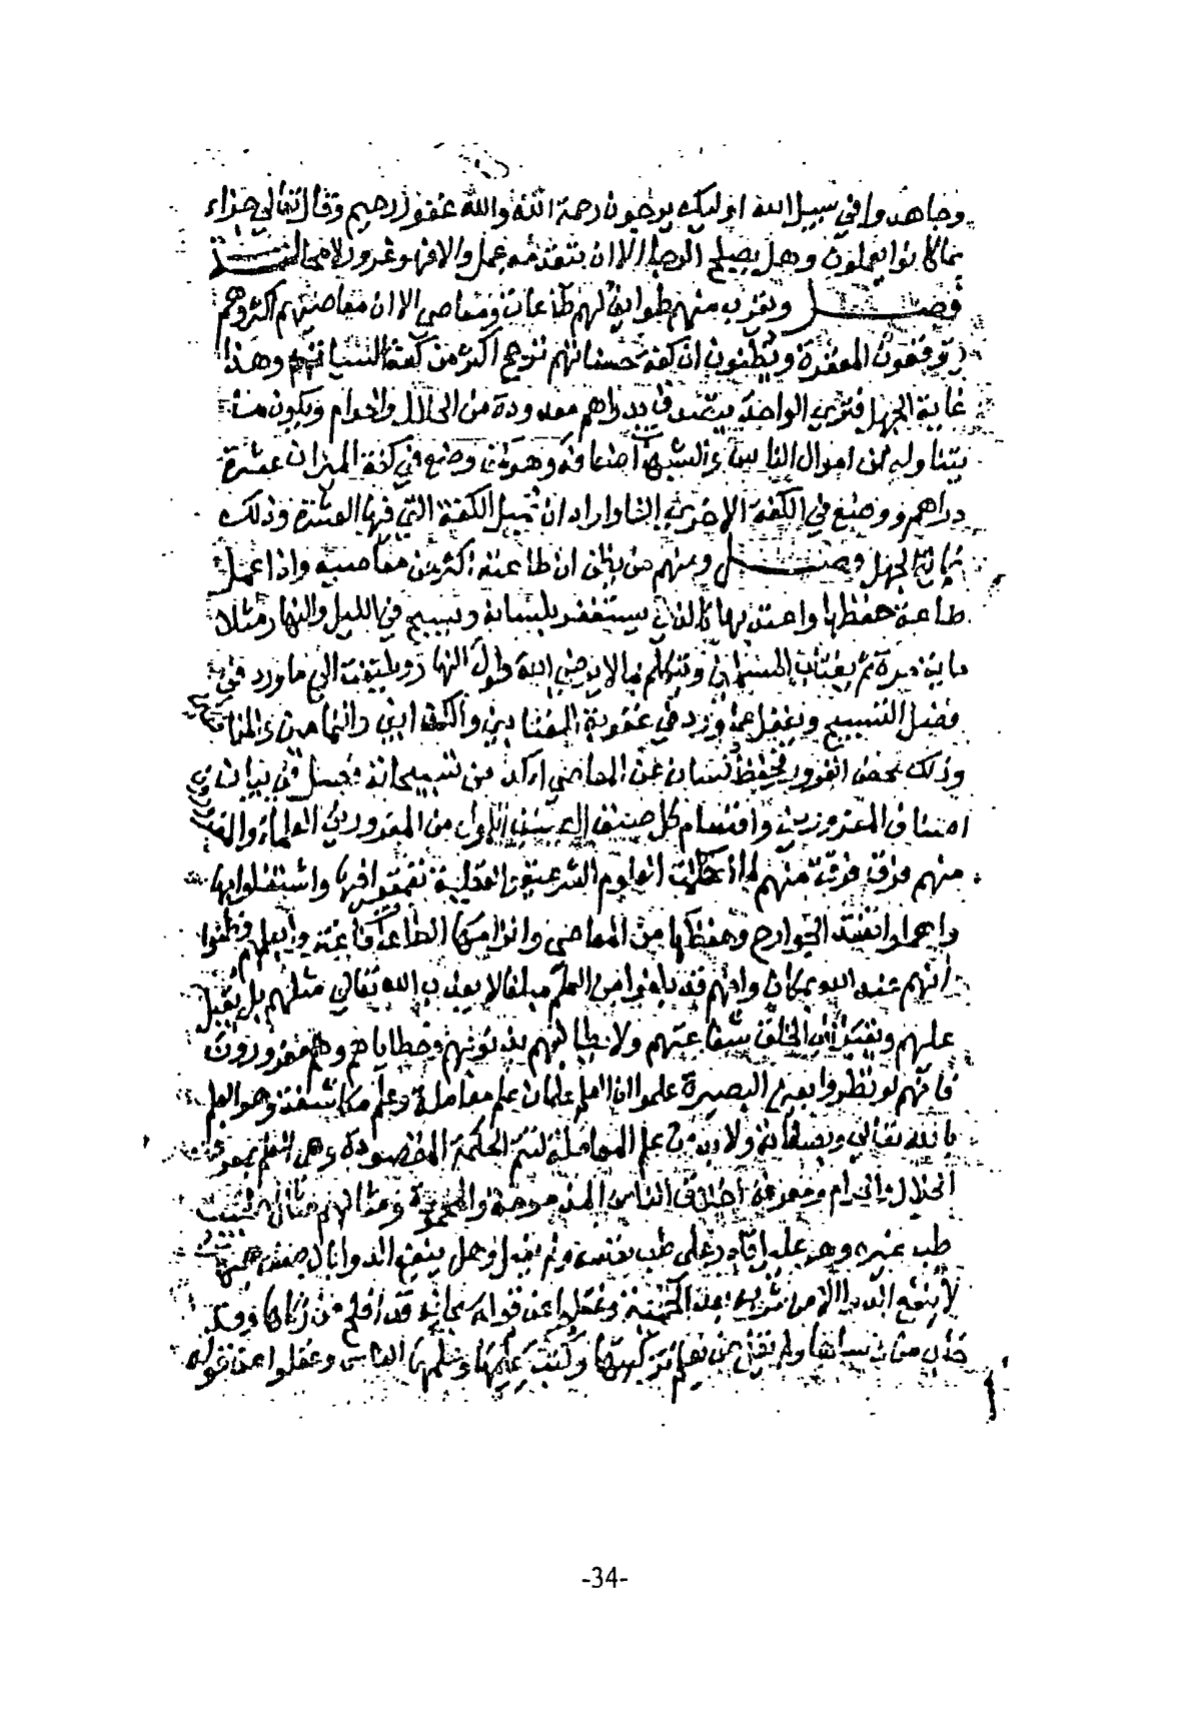 وجاهدوا في سبيل الله اوليك يرجون رحمة الله والله غفور رحيم وقال تعالى جزاء
بما كانوا يعملون وهل يصلح الرجا الا ان يتقدمه عمل والا فهو غرور لا محالة
فصل ويقرب منهم طوايف لهم طاعات ومعاصي الا ان معاصيهم اكثر وهم
يتوقعون المغفرة ويظنون ان كفة حسناتهم ترجح اكثر من كفة السيات وهذا
غاية الجهل فترى الواحد يتصدق بدراهم معدودة من الحلال والحرام ويكون ما
يتناوله من اموال الناس والشبهات اضعافه وهو كمن وضع في كفة الميزان عشرة
دراهم ووضع في الكفة الاخرى الفا واراد ان تميل الكفة التي فيها العشرة وذلك
غاية الجهل فصل ومنهم من يظن ان طاعته اكثر من معاصيه واذا عمل
طاعة حفظها واعتد بها كالذي يستغفر بلسانه ويسبح في الليل والنهار مثلا
ماية مرة ثم يغتاب المسلمين ويتكلم بما لا يرضي الله طول النهار ويلتفت الى ما ورد في
فضل التسبيح ويغفل عما ورد في عقوبة المغتابين والكذابين والنمامين والمنافقين
وذلك محض الغرور فحفظ لسانه عن المعاصي اكد من تسبيحاته فصل في بيان
اصناف المغترورين واقسام كل صنف الصنف الاول من المغرورين العلماء
منهم فرق فرقة منهم لما احكمت العلوم الشرعية والعقلية تعمقوا فيها واشتغلوا بها
واهملوا تفقد الجوارح وحفظها من المعاصي والزامها الطاعة فاغتروا بعلمهم وظنوا
انهم عند الله بمكان وانهم قد بلغوا من العلم مبلغا لا يعذب الله تعالى مثلهم بل يقبل
عليهم ويقبل في الخلق شفاعتهم ولا يطالبهم بذنوبهم وخطاياهم وهم مغرورون
فانهم لو نظروا بعين البصيرة علموا ان العلم علمان علم معاملة وعلم مكاشفة وهو العلم
بالله تعالى وبصفاته ولا بد من علم المعاملة لتتم الحكمة المقصودة وهي العلم بمعرفة
الحلال والحرام ومعرفة اخلاق الناس المذمومة والمحمودة ومثالهم مثال طبيب
طب غيره وهو عليل قادر على طب نفسه ولم يفعل وهل ينفع الدوا بالوصف هيهات
لا ينفع الدوا الا من شربه بعد الحمية وغفلوا عن قوله سبحانه قد افلح من زكاها وقد
خاب من دساها ولم يقل من يعلم تزكيتها وكتب علمها وعلمها الناس وغفلوا عن قوله
-34-